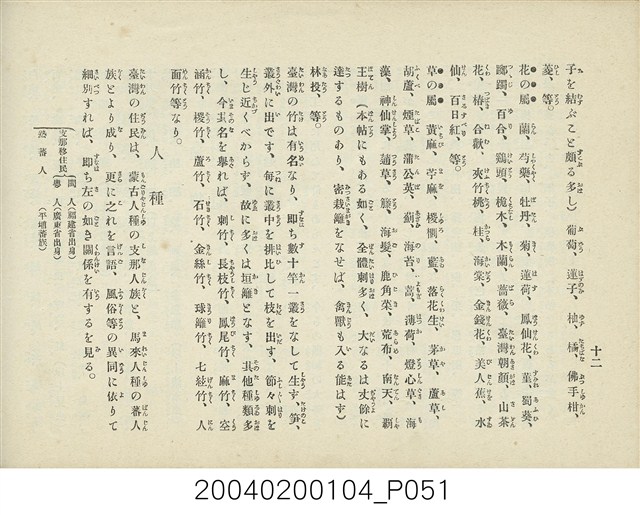 十二
子を結ぶこと頗る多し）葡萄、蓮子、柚、橘、佛手柑、
菱、等。
花の屬 蘭、芍藥、牡丹、菊、蓮荷、鳳仙花、菫、蜀葵、
躑躅、百合、鷄頭、桅木、木蘭、薔薇、臺灣朝顏、山茶
花、椿、合歡、夾竹桃、桂、海棠、金錢花、美人蕉、水
仙、百日紅、等。
草の屬 黃麻、苧麻、椶櫚、藍、落花生、茅草、蘆草、
葫蘆、煙草、蒲公英、薊、海苔、蒿、薄荷、燈心草、海
藻、神仙掌、蒲草、籐、海髮、鹿角菜、荒布、南天、覇
王樹（本帖にもある如く、全體刺多く、大なるは丈餘に
達するものあり、密栽籬をなせば、禽獸も入る能はず）
林投、等。
臺灣の竹は有名なり、即ち數十竿一叢をなして生ず、笋、
叢外に出でず、每に叢中を排比して枝を出す、節々刺を
生じ近くべからず、故に多くは垣籬となす、其他種類多
し、今主名を擧れば、刺竹、長枝竹、鳳尾竹、麻竹、空
涵竹、椶竹、蘆竹、石竹、金絲竹、球籬竹、七絃竹、人
面竹等なり。
人種
臺灣の住民は、蒙古人種の支那人族と、馬來人種の蕃人
族とより成り、更に之れを言語、風俗等の異同に依りて
細別すれば、即ち左の如き關係を有するを見る。
支那移住民
閩人（福建省出身）
粵人（廣東省出身）
熟蕃人（平埔蕃族）
20040200104_P051